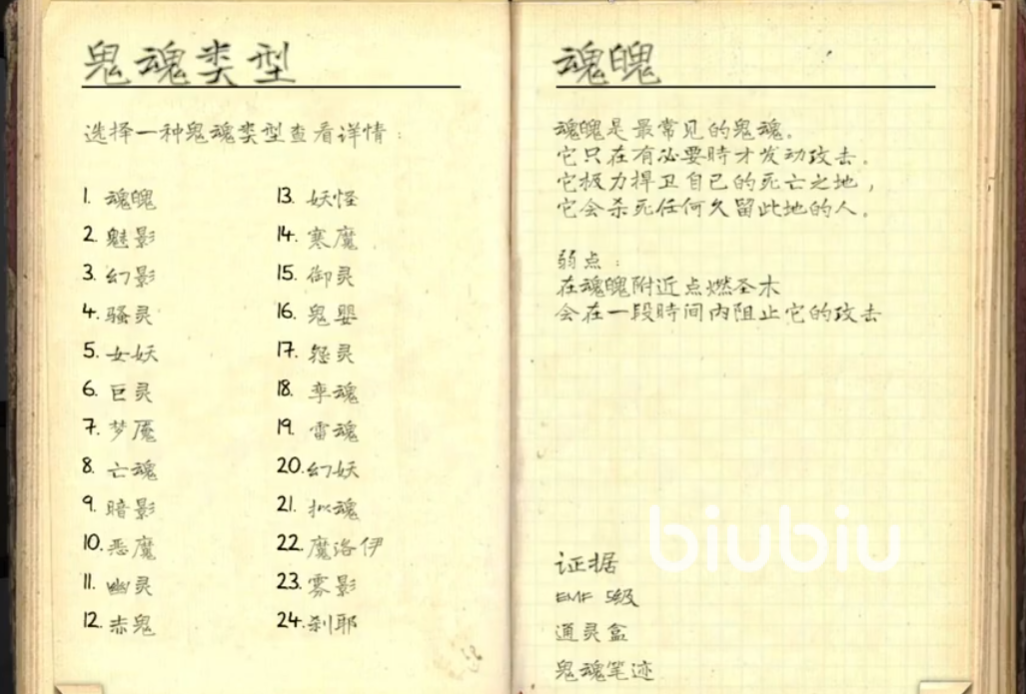 鬼魂类型
选择一种鬼魂类型查看详情：
1. 魂魄
2. 魅影
3. 幻影
4. 骚灵
5. 女妖
6. 巨灵
7. 梦魇
8. 亡魂
9. 暗影
10. 恶魔
11. 幽灵
12. 赤鬼
13. 妖怪
14. 寒魔
15. 御灵
16. 鬼婴
17. 怨灵
18. 孪魂
19. 雷魂
20. 幻妖
21. 拟魂
22. 魔洛伊
23. 雾影
24. 刹耶
魂魄
魂魄是最常见的鬼魂。
它只在有必要時才发动攻击。
它极力捍卫自己的死亡之地，
它会杀死任何久留此地的人。
弱点：
在魂魄附近点燃圣木
会在一段時间内阻止它的攻击
biubiu
证据
EMF 5级
通灵盒
鬼魂笔迹